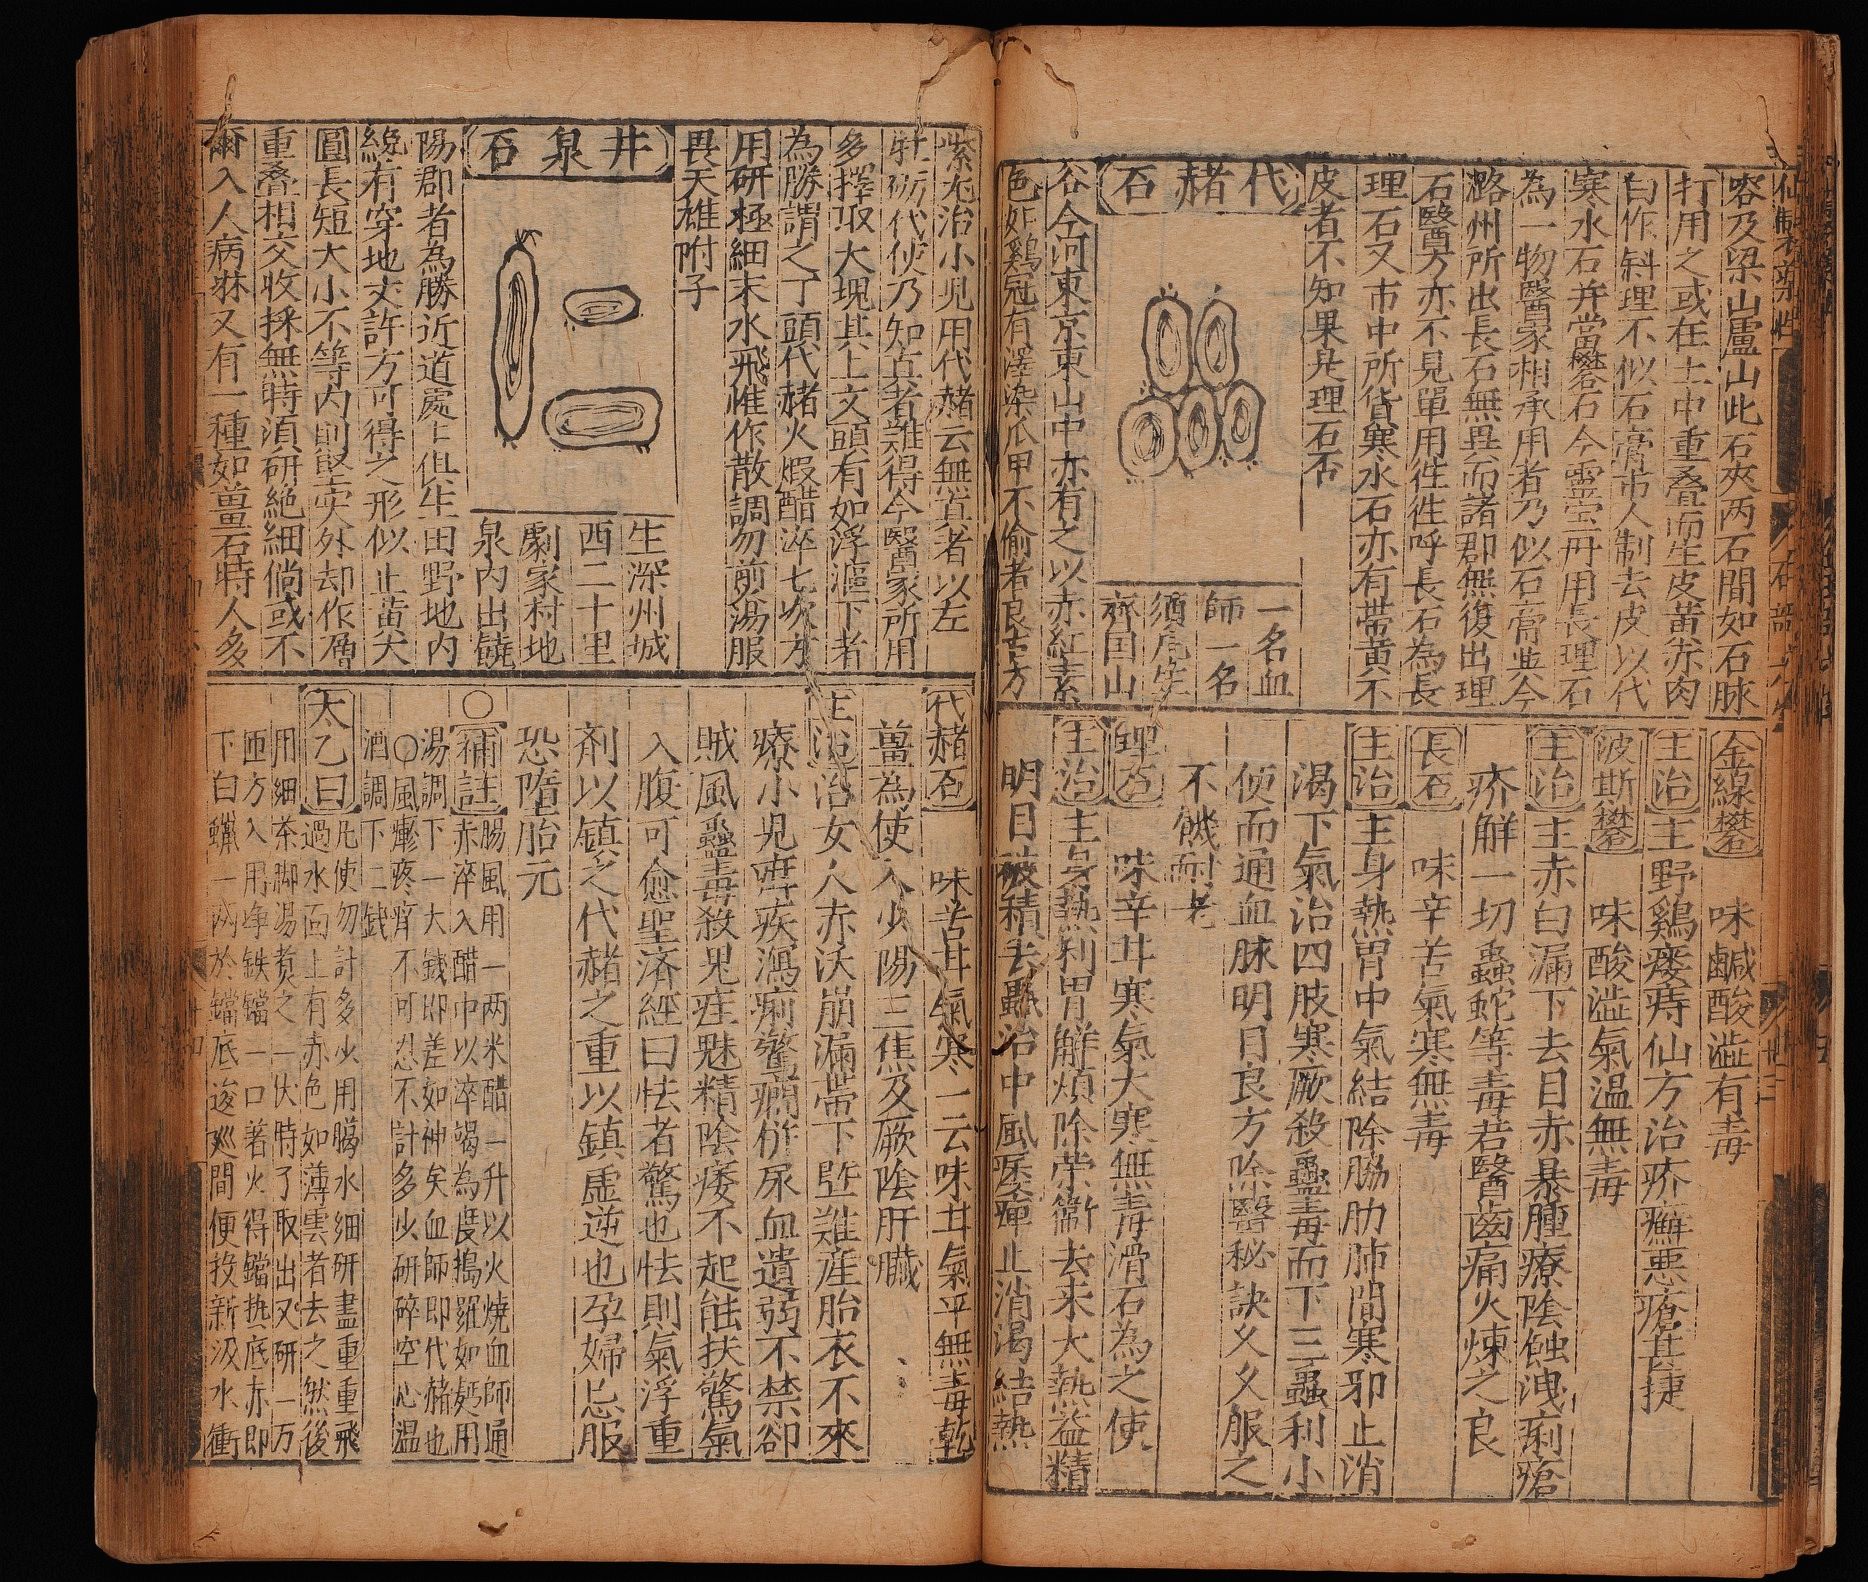 容及梁山盧山此石夾两石間如石脉
打用之或在土中重叠而生皮黄赤肉
白作斜理不似石膏市人制去皮以代
寒水石并當礬石今靈宝丹用長理石
為一物醫家相承用者乃似石膏與今
潞州所出長石無異而諸郡無復出理
石醫方亦不見單用徃徃呼長石為長
理石又市中所貨寒水石亦有帯黄不
皮者不知果是理石否
代赭石
一名血
師一名
須丸生
齊国山
谷今河東京東山中亦有之以赤紅青
色如鷄冠有澤染爪甲不渝者良古方
金線礬
味鹹酸澁有毒
主治主野鷄瘻痔仙方治疥癬悪瘡甚捷
波斯礬
味酸澁氣温無毒
主治主赤白漏下去目赤暴腫療陰蝕洩痢瘡
疥解一切蟲蛇等毒若醫齒痛火煉之良
長石
味辛苦氣寒無毒
主治主身熱胃中氣結除脇肋肺間寒邪止消
渴下氣治四肢寒厥殺蠱毒而下三蟲利小
便而通血脉明目良方除醫秘訣久久服之
不饑耐老
理石
味辛甘寒氣大寒無毒滑石為之使
主治主身熱利胃解煩除荣衞去来大熱益精
明目破積去蟲治中風痿痺止消渴結熱
紫丸治小児用代赭云無真者以左
牡蛎代使乃知真者難得今醫家所用
多擇取大塊其上文頭有如浮漚丁者
為勝謂之丁頭代赭火煆醋淬七次方
用研極細末水飛惟作散調勿煎湯服
畏天雄附子
井泉石
生深州城
西二十里
劇家村地
泉内出饒
陽郡者為勝近道處亡但生田野地内
統有穿地丈許方可得之形似止黄大
圓長短大小不等内則堅实外却作層
重叠相交收採無時湏研絶細倘或不
爾入人病淋又有一種如薑石時人多
代赭石
味苦甘氣寒一云味甘氣平無毒乾
薑為使入少陽三焦及厥陰肝臟
主治治女人赤沃崩漏帶下暨難産胎衣不來
療小児疳疾瀉痢驚癇併尿血遺弱不禁卻
賊風蠱毒殺鬼疰魅精陰痿不起能扶驚氣
入腹可愈聖済經曰怯者驚也怯則氣浮重
剤以镇之代赭之重以鎮虚逆也孕婦忌服
恐墮胎元
○補註腸風用一两米醋一升以火燒血師通
赤淬入醋中以淬竭為度搗羅如麪用
湯調下一大錢即差如神矣血師即代赭也
○風𤺋疼痒不可忍不計多少研碎空心温
酒調下二錢
太乙曰凡使勿計多少用臈水細研盡重重飛
過水面上有赤色如薄雲者去之然後
用細茶脚湯煮之一伏時了取出又研一万
匝方入用净鉄鐺一口著火得鐺热底赤即
下白蠟一两於鐺底逡巡間便投新汲水衝